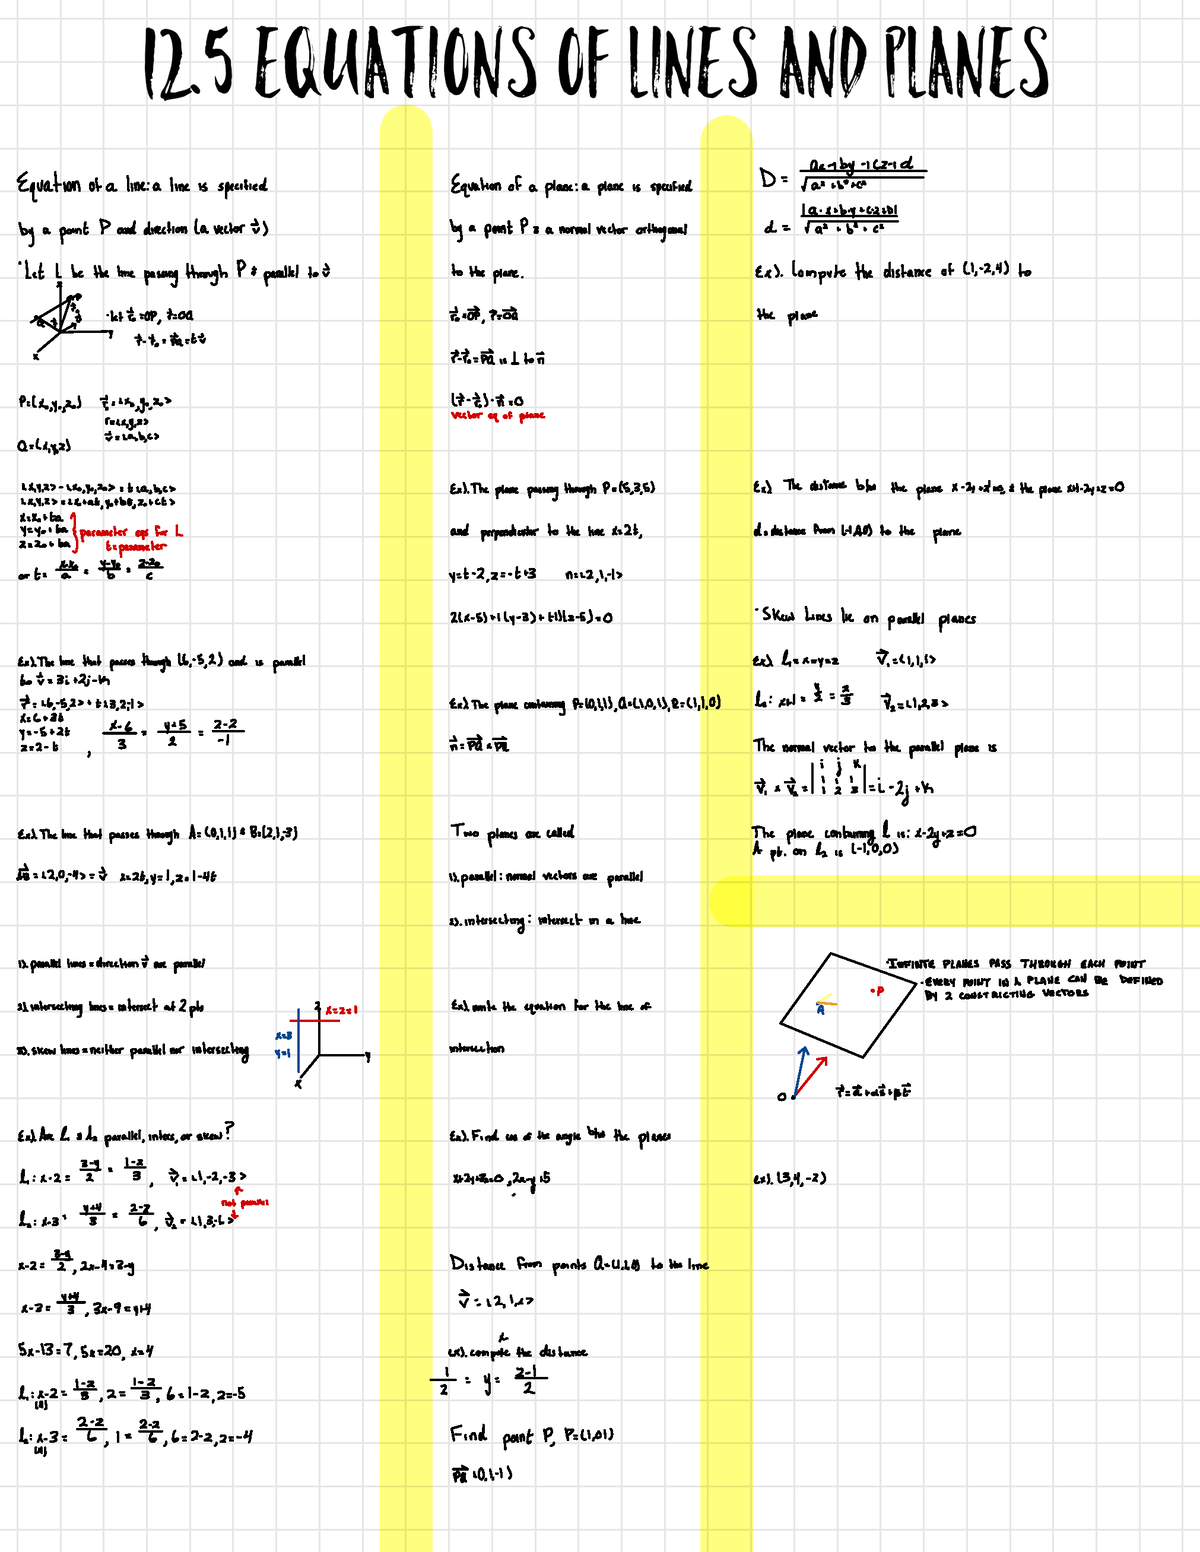 12.5 EQUATIONS OF LINES AND PLANES
Equation of a line: a line is specified
by a point P and direction (a vector v⃗)
·Let L be the line passing through P & parallel to v⃗
·let r⃗₀=OP, r⃗=OQ
r⃗-r⃗₀=P⃗Q=tv⃗
x
y
z
P=(x₀,y₀,z₀) r⃗₀=<x₀,y₀,z₀>
r=<x,y,z>
v⃗=<a,b,c>
Q=(x,y,z)
<x,y,z>-<x₀,y₀,z₀>=t<a,b,c>
<x,y,z>=<x+at,y₀+bt,z₀+ct>
x=x₀+ta
y=y₀+ta
z=z₀+ta
parameter eqs for L
t=parameter
or t= x-x₀/a = y-y₀/b = z-z₀/c
Ex). The line that passes through (6,-5,2) and is parallel
to v⃗=3i+2j-k
r⃗=<6,-5,2>+t<3,2,-1>
x=6+3t
y=-5+2t
z=2-t , x-6/3 = y+5/2 = z-2/-1
Ex). The line that passes through A=(0,1,1) & B=(2,1,-3)
A⃗B=<2,0,-4>=v⃗ x=2t, y=1, z=1-4t
1). parallel lines=direction v⃗ are parallel
2). intersecting lines=intersect at 2 pts
3). skew lines=neither parallel nor intersecting
z
x=z=1
x=3
y=1
y
x
Ex). Are L₁ & L₂ parallel, inters, or skew?
L₁: x-2= 3-y/2 = 1-z/3, v⃗₁=<1,-2,-3>
not parallel
L₂: x-3= y+4/3 = 2-z/6, v⃗₂=<1,3,-6>
x-2= 3-y/2, 2x-4=3-y
x-3= y+4/3, 3x-9=y+4
5x-13=7, 5x=20, x=4
L₁: x-2= 1-z/3, 2= 1-z/3, 6=1-z, z=-5
(4)
L₂: x-3= 2-z/6, 1= 2-z/6, 6=2-z, z=-4
(4)
Equation of a plane: a plane is specified
by a point P & a normal vector orthogonal
to the plane.
r⃗₀=O⃗P, r⃗=O⃗Q
r⃗-r⃗₀=P⃗Q is ⊥ to n⃗
(r⃗-r⃗₀)·n⃗=0
vector eq of plane
Ex). The plane passing through P=(5,3,5)
and perpendicular to the line x=2t,
y=t-2, z=-t+3 n=<2,1,-1>
2(x-5)+1(y-3)+(-1)(z-5)=0
Ex) The plane containing P=(0,1,1), Q=(1,0,1), R=(1,1,0)
n⃗=P⃗Q×P⃗R
Two planes are called
1). parallel: normal vectors are parallel
2). intersecting: intersect in a line
Ex). write the equation for the line of
intersection
Ex). Find cos of the angle btw the planes
x+2y+z=0, 2x-y=5
Distance from points to the line
v⃗=<2,1,2>
ex). compute the distance
1/2 = y = z-1/2
Find point P, P=(1,0,1)
P⃗Q=0,1,-1)
D= ax+by+cz+d/√a²+b²+c²
d= |a·x+b·y+c·z+D|/√a²+b²+c²
Ex). Compute the distance of (1,-2,4) to
the plane
Ex) The distance btw the plane & the plane x+1-2y+z=0
d=distance from (-1,0,0) to the plane
·Skew Lines lie on parallel planes
Ex). L₁=x=y=z v⃗₁=(1,1,1)
L₂: x+1= y/2 = z/3 v⃗₂=<1,2,3>
The normal vector to the parallel plane is
v⃗₁×v⃗₂=|i j k 1 1 1 1 2 3|=i-2j+k
The plane containing L is: x-2y+z=0
A pt. on L₂ is (-1,0,0)
·INFINITE PLANES PASS THROUGH EACH POINT
·EVERY POINT IN A PLANE CAN BE DEFINED
BY 2 CONSTRUCTING VECTORS
·P
A
O
r⃗=a⃗+αs⃗+βt⃗
ex). (3,4,-2)